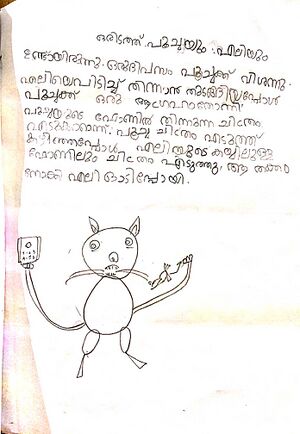 ഒരിടത്ത് പൂച്ചയും എലിയും
ഉണ്ടായിരുന്നു. ഒരുദിവസം പൂച്ചക്ക് വിശന്നു.
എലിയെപിടിച്ച് തിന്നാൻ തുടങ്ങിയപ്പോൾ
പൂച്ചക്ക് ഒരു ആഗ്രഹംതോന്നി
പൂച്ചയുടെ ഫോണിൽ തിന്നുന്ന ചിത്രം
എടുക്കാമെന്ന്. പൂച്ച ചിത്രം എടുത്ത്
കഴിഞ്ഞപ്പോൾ എലിയുടെ കയ്യിലുള്ള
ഫോണിലും ചിത്രം എടുത്തു, ആ തക്കം
നോക്കി എലി ഓടിപ്പോയി.